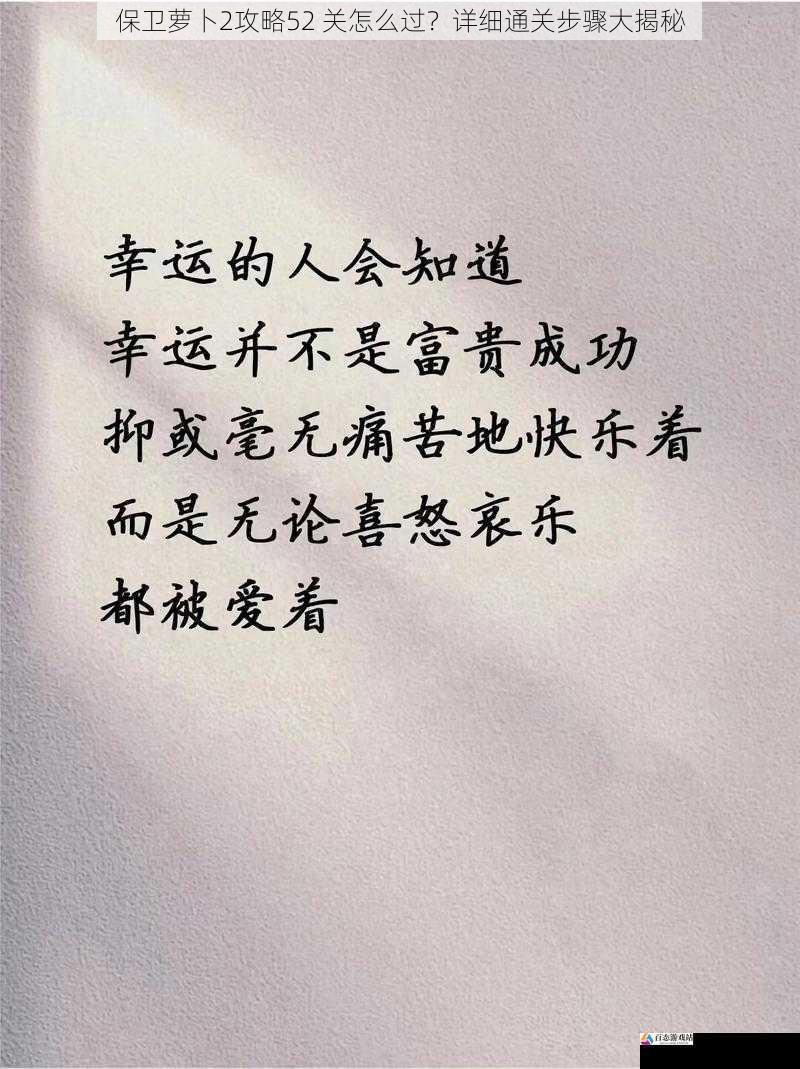 保卫萝卜2攻略52 关怎么过？详细通关步骤大揭秘
幸运的人会知道
幸运并不是富贵成功
抑或毫无痛苦地快乐着
而是无论喜怒哀乐
都被爱着
百态游戏站